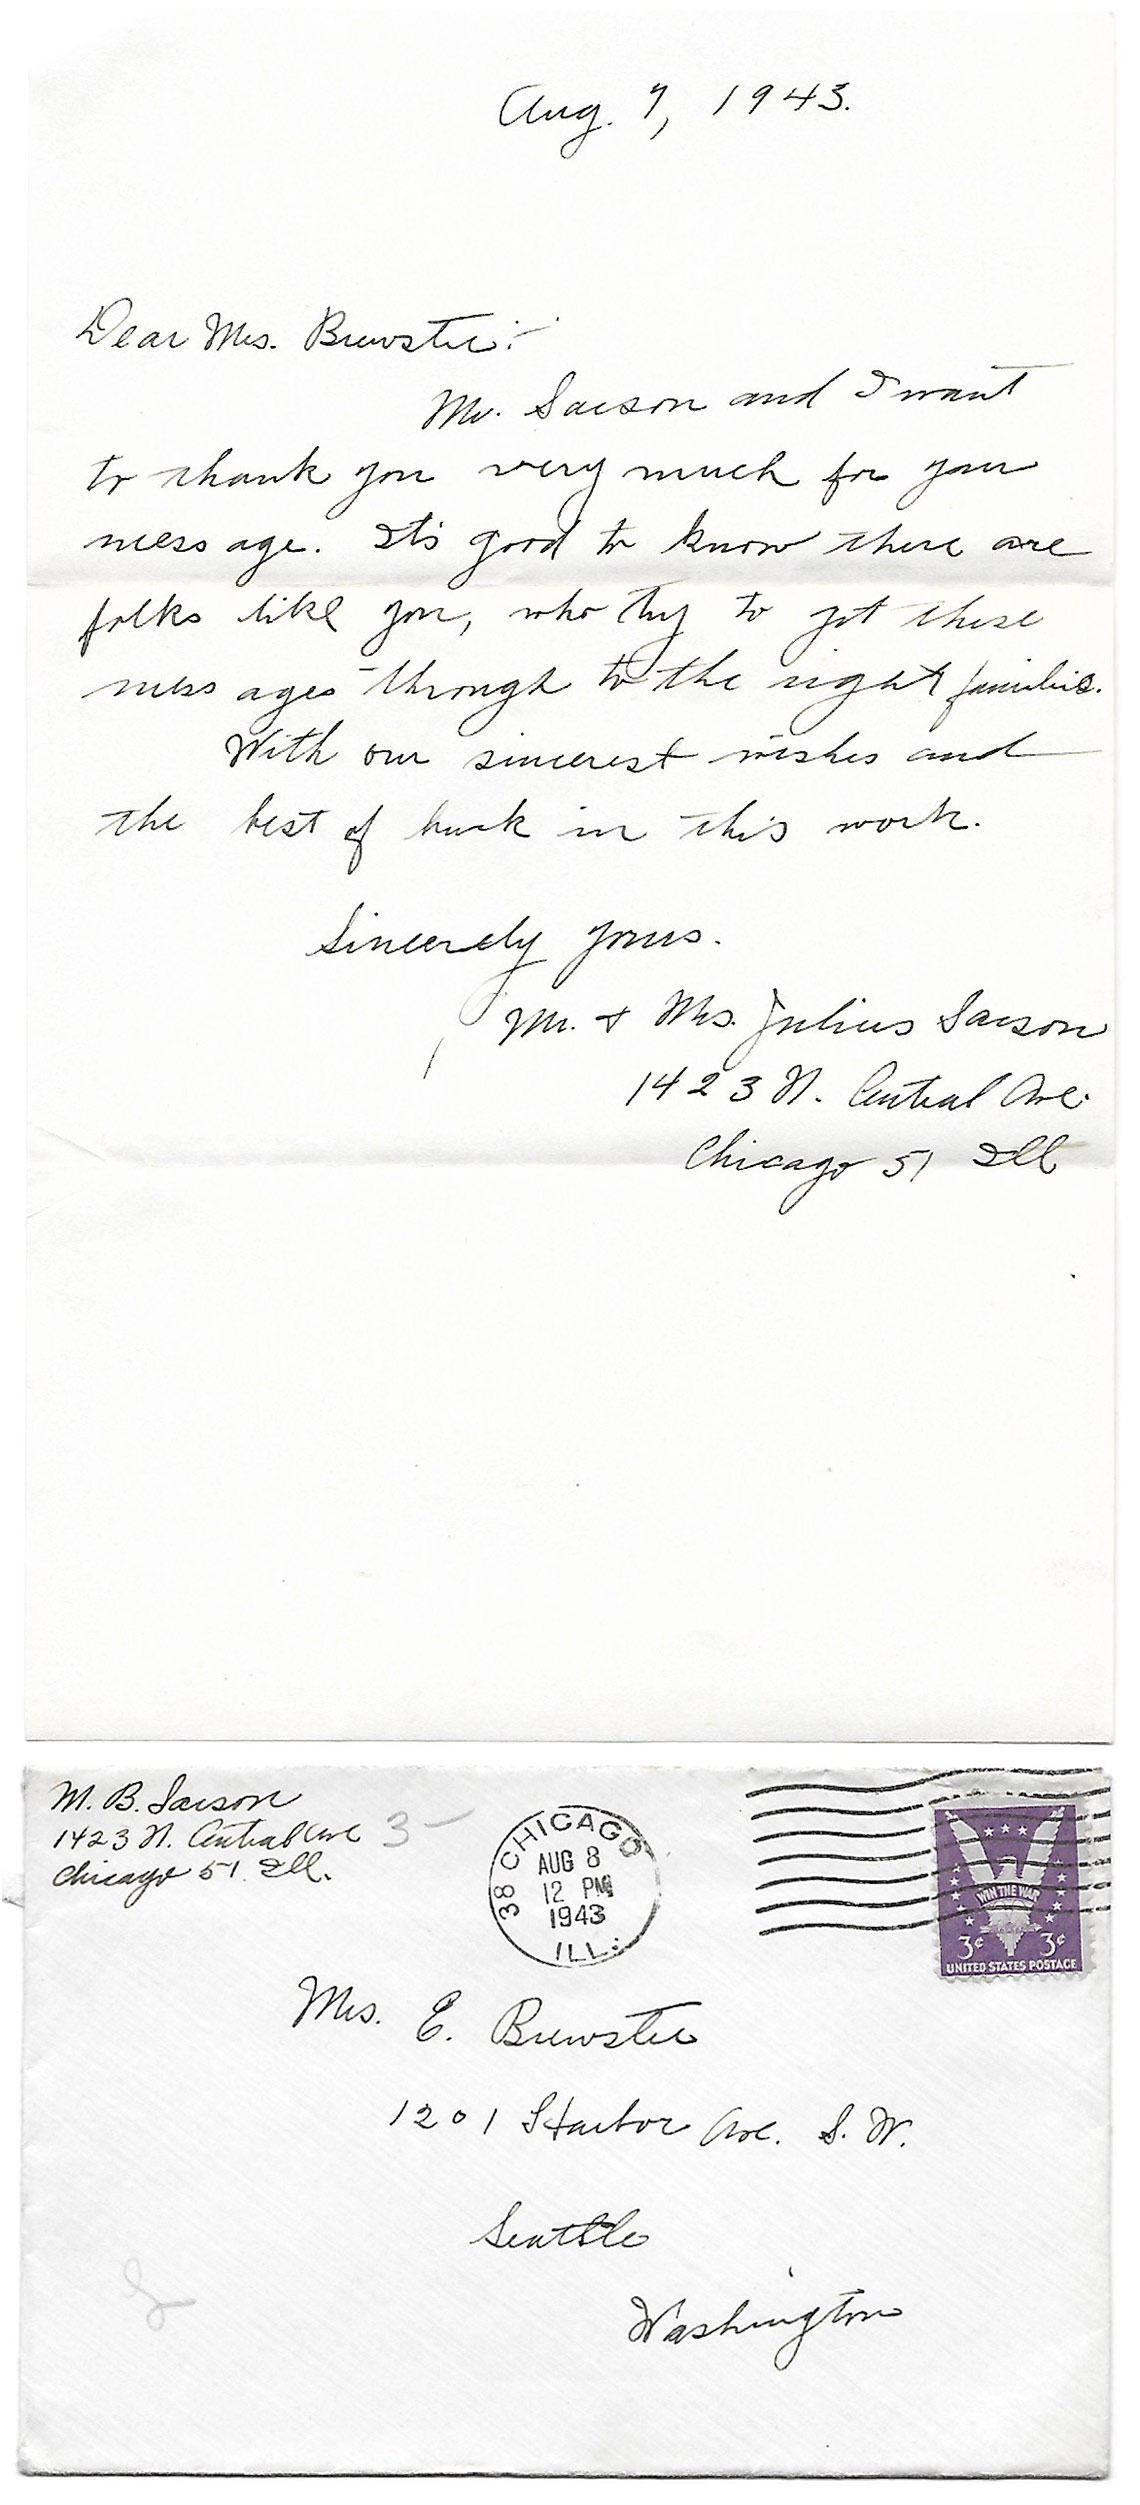 Aug. 7, 1943.
Dear Mrs. Brewster:-
Mr. Sacson and I want
to thank you very much for your
message. It's good to know there are
folks like you, who try to get these
messages through to the right families.
With our sincerest wishes and
the best of luck in this work.
Sincerely yours.
Mr. & Mrs. Julius Sacson
1423 N. Central Ave.
Chicago 51 Ill
M. B. Sacson
1423 N. Central Ave
Chicago 51. Ill.
3-
38 CHICAGO
AUG 8
12 PM
1943
ILL.
WIN THE WAR
3¢ 3¢
UNITED STATES POSTAGE
Mrs. E. Brewster
1201 Harbor Ave. S. W.
Seattle
Washington